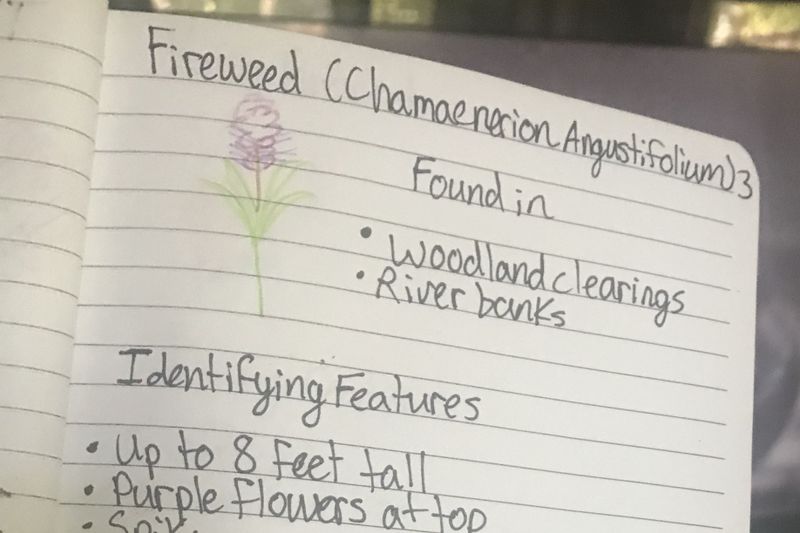 Fireweed (Chamaenerion Angustifolium) 3
Found in
• Woodland clearings
• River banks
Identifying Features
• Up to 8 feet tall
• Purple flowers at top